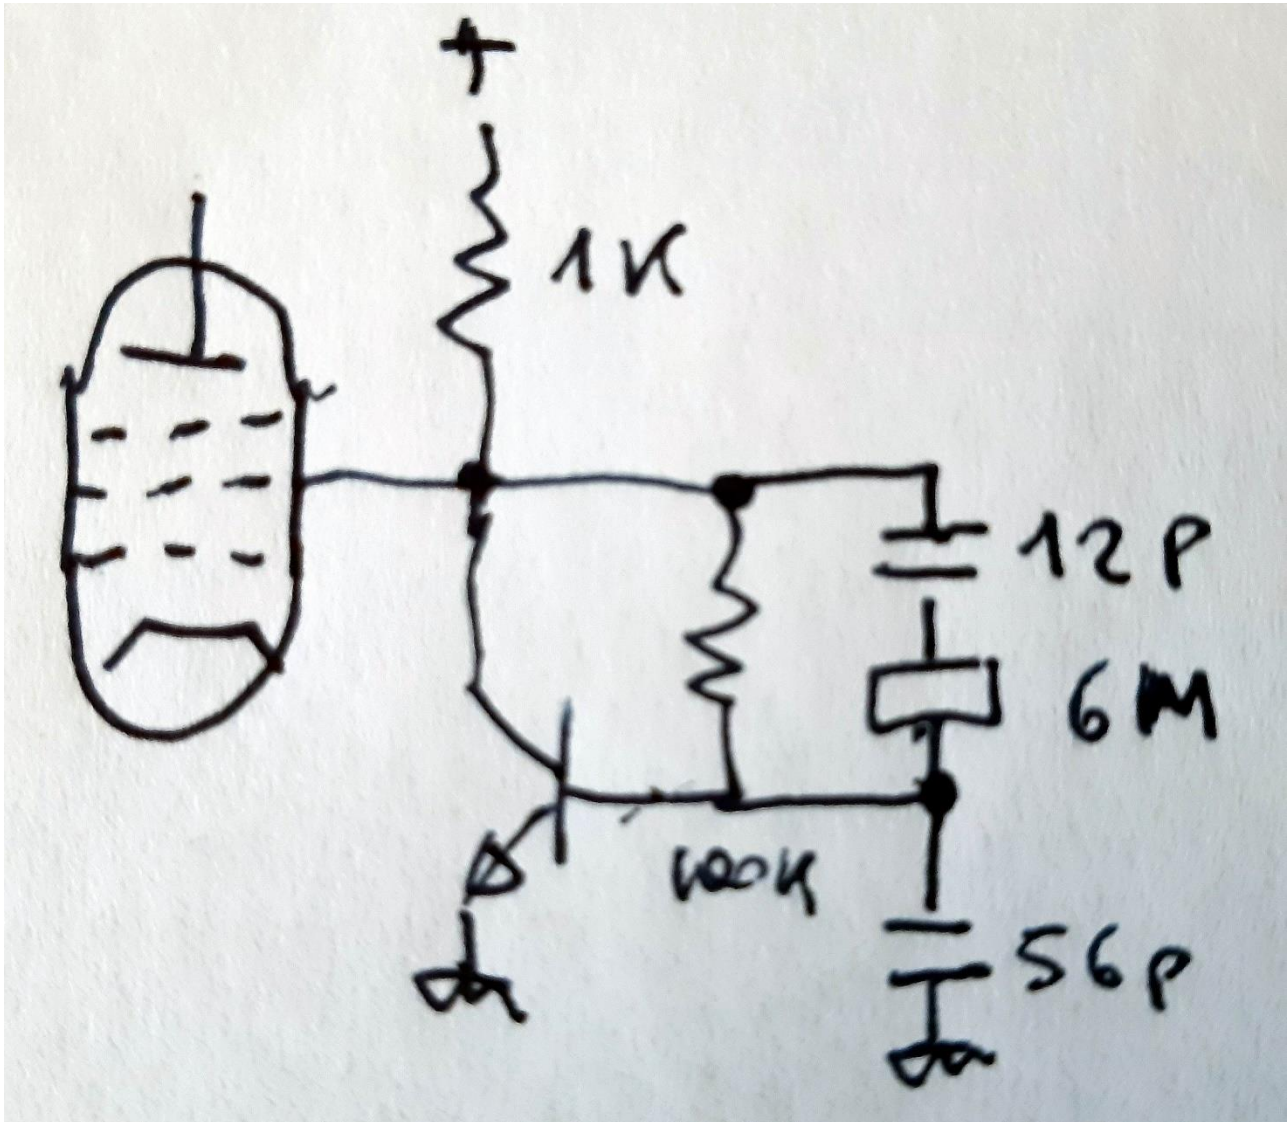 +
1K
12p
6M
100K
56p